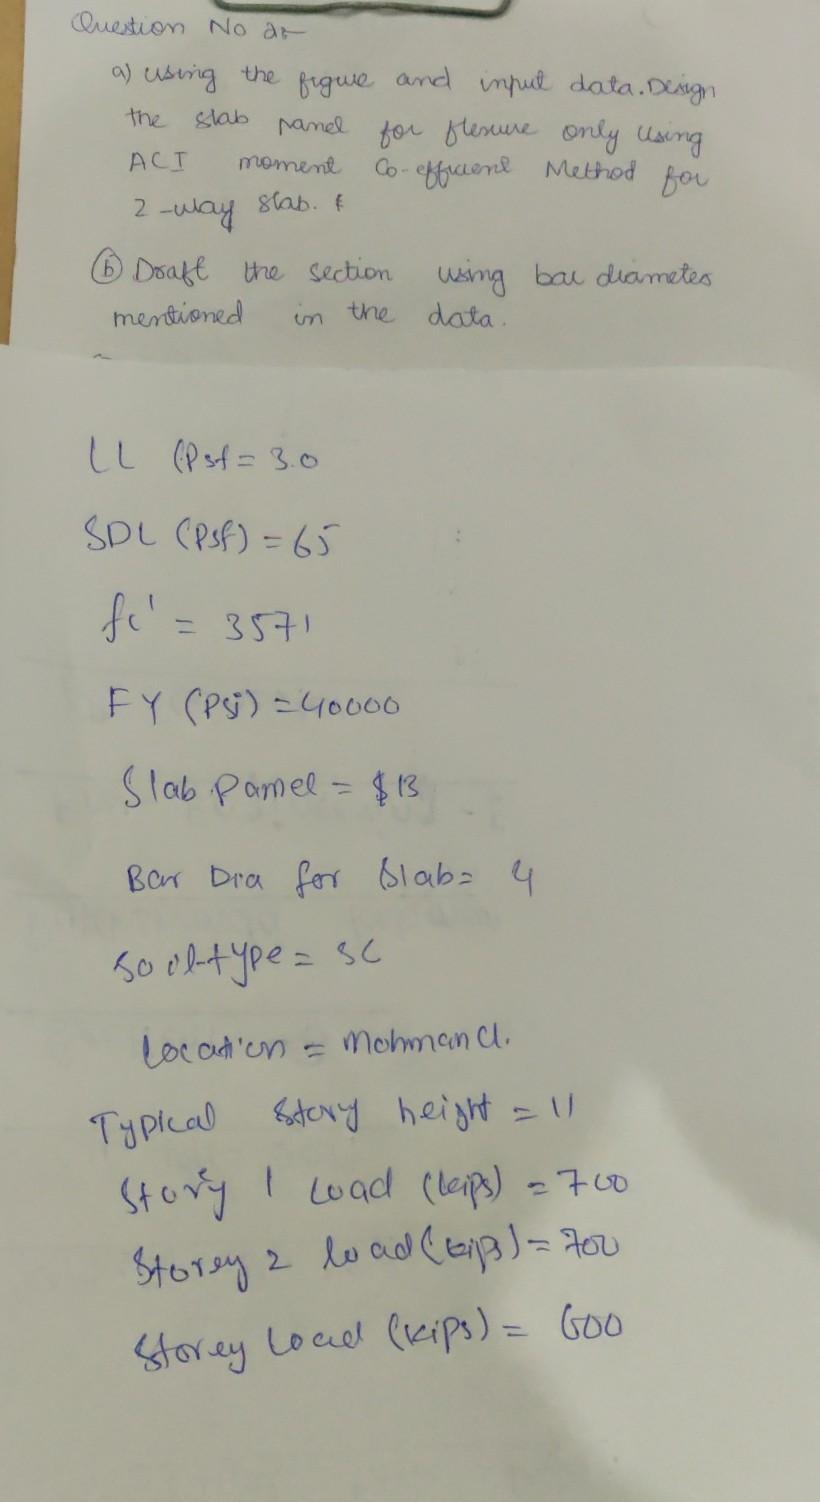 Question No 2:-
a) using the figure and input data. Design
the slab panel for flexure only using
ACI moment Co-efficient Method for
2-way slab. &
(b) Draft the section using bar diameter
mentioned in the data.
LL (Psf = 3.0
SDL (Psf) = 65
fc' = 3571
FY (Psi) = 40000
Slab Pamel = $13
Bar Dia for Slab = 4
Soil-type = SC
Location = Mohmand.
Typical Story height = 11
Story 1 Load (kips) = 700
Storey 2 load (kips) = 700
Storey Load (kips) = 600